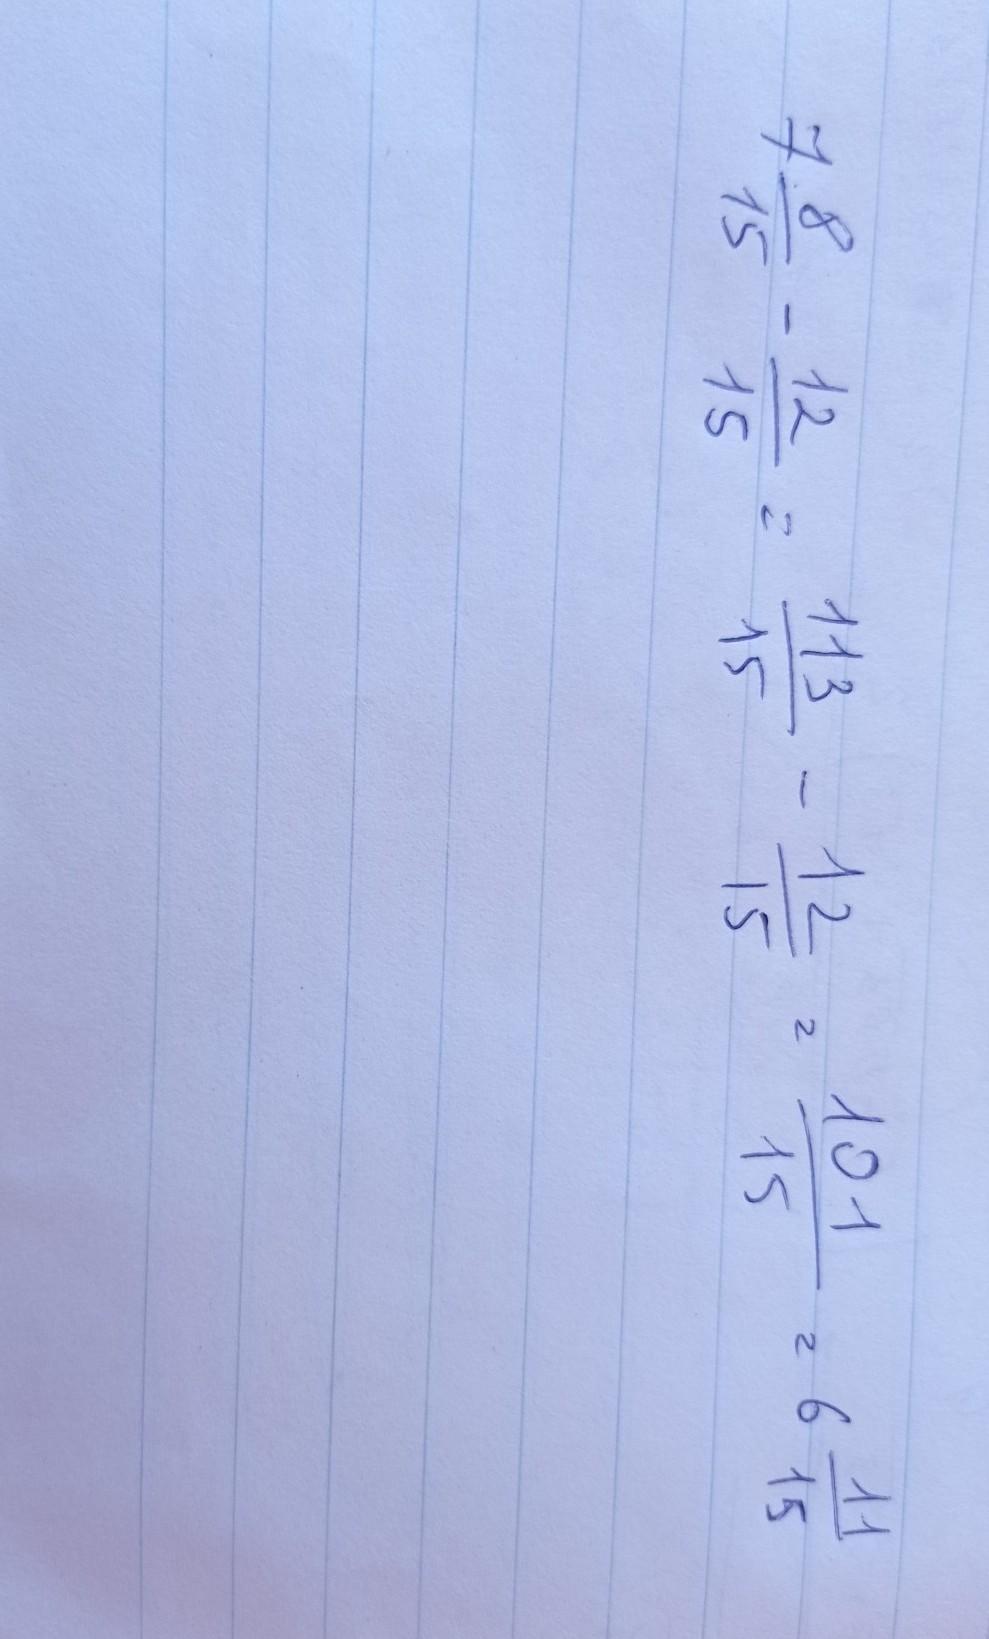 7 8/15 - 12/15 = 113/15 - 12/15 = 101/15 = 6 11/15